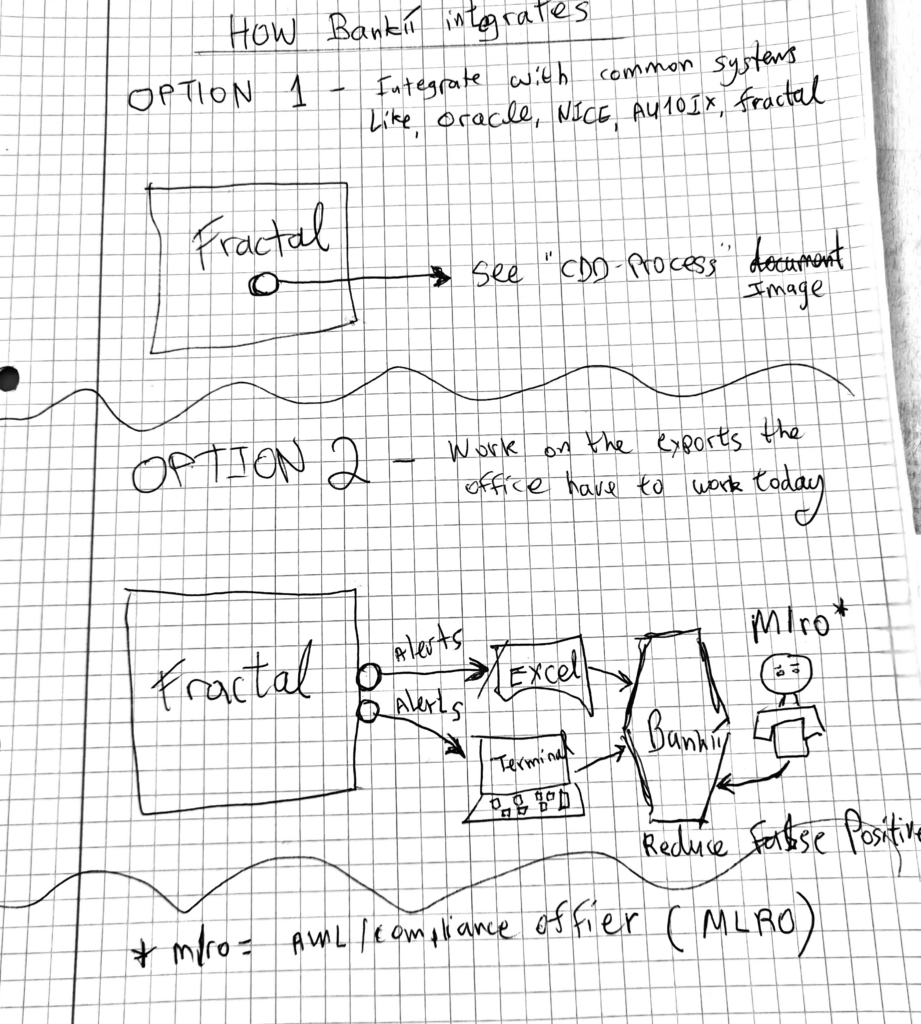 HOW Bankii integrates
OPTION 1 - Integrate with common systems
Like, oracle, NICE, AU10IX, fractal
Fractal
See "CDD-Process" document
Image
OPTION 2 - Work on the exports the
office have to work today
Mlro*
Fractal
Alerts
Alerts
Excel
Terminal
Bankii
Reduce False Positive
* mlro = AML/compliance offier (MLRO)